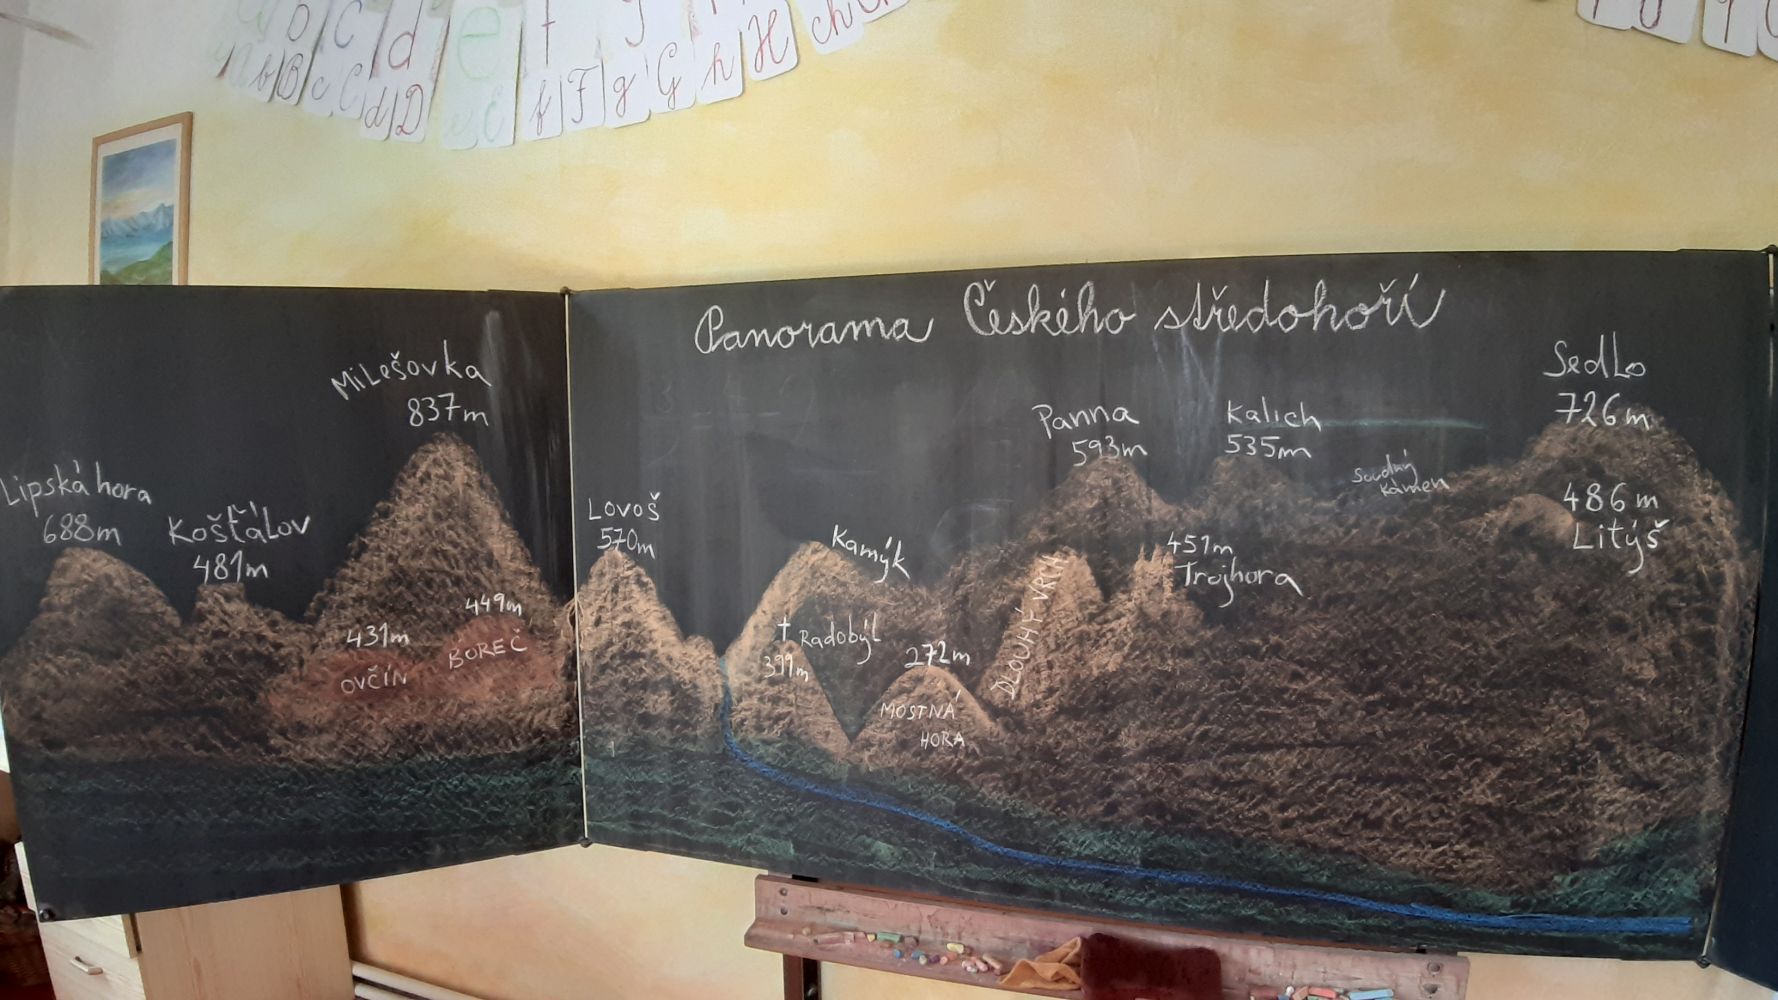 b c d e f
b B c C d D e E f F g G h H ch
Panorama Českého středohoří
Lipská hora
688m
Košťálov
481m
Milešovka
837m
431m
OVČÍN
449m
BOREČ
Lovoš
570m
Kamýk
Radobýl
399m
272m
MOSTNÁ
HORA
DLOUHÝ VRCH
Panna
593m
451m
Trojhora
Kalich
535m
Soudný
kámen
Sedlo
726m
486m
Litýš